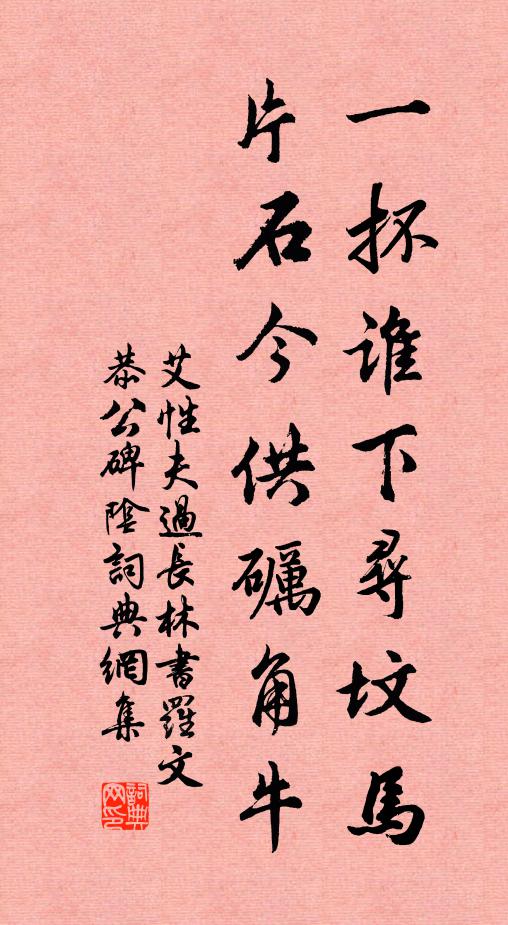 一抔誰下尋墳馬
片石今供礪角牛
艾性夫過長林書羅文
恭公碑陰詞典網集
詞典网印